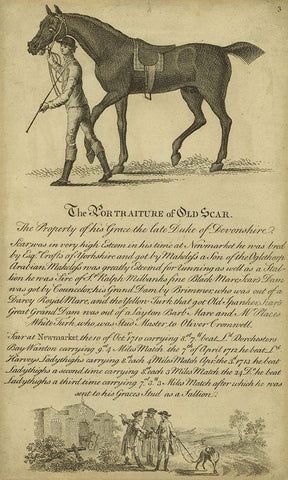 3
The PORTRAITURE of OLD SCAR.
The Property of his Grace the late Duke of Devonshire.
Scar was in very high Esteem in his time at Newmarket he was bred
by Esq.r Crofts of Yorkshire and got by Makeless a Son of the Oglethorp
Arabian. Makeless was greatly Esteemd for running as well as a Stal-
lion he was Sire of S.r Ralph Milbanks fine Black Mare Scar's Dam
was got by Counseler, his Grand Dam by Brimmer, who was out of a
Darcy Royal Mare, and the Yellow Turk that got Old Spanker. Scar's
Great Grand Dam was out of a Layton Barb Mare and M.r Places
White Turk, who was Stud Master to Oliver Cromwell.
Scar at Newmarket the 10 of Oct.r 1710 carrying 8.st 7.lb beat L.d Dorchesters
Bay Warston carrying 9.st 4 Miles Match. the 7.th of April 1712 he beat L.d
Harveys Ladythighs carrying 8.st each 4 Miles Match April the 3.d 1713 he beat
Ladythighs a second time carrying 8.st each 3 Miles Match. the 24 D.o he beat
Ladythighs a third time carrying 7.st 3.lb 3 Miles Match after which he was
sent to his Graces Stud as a Stallion.